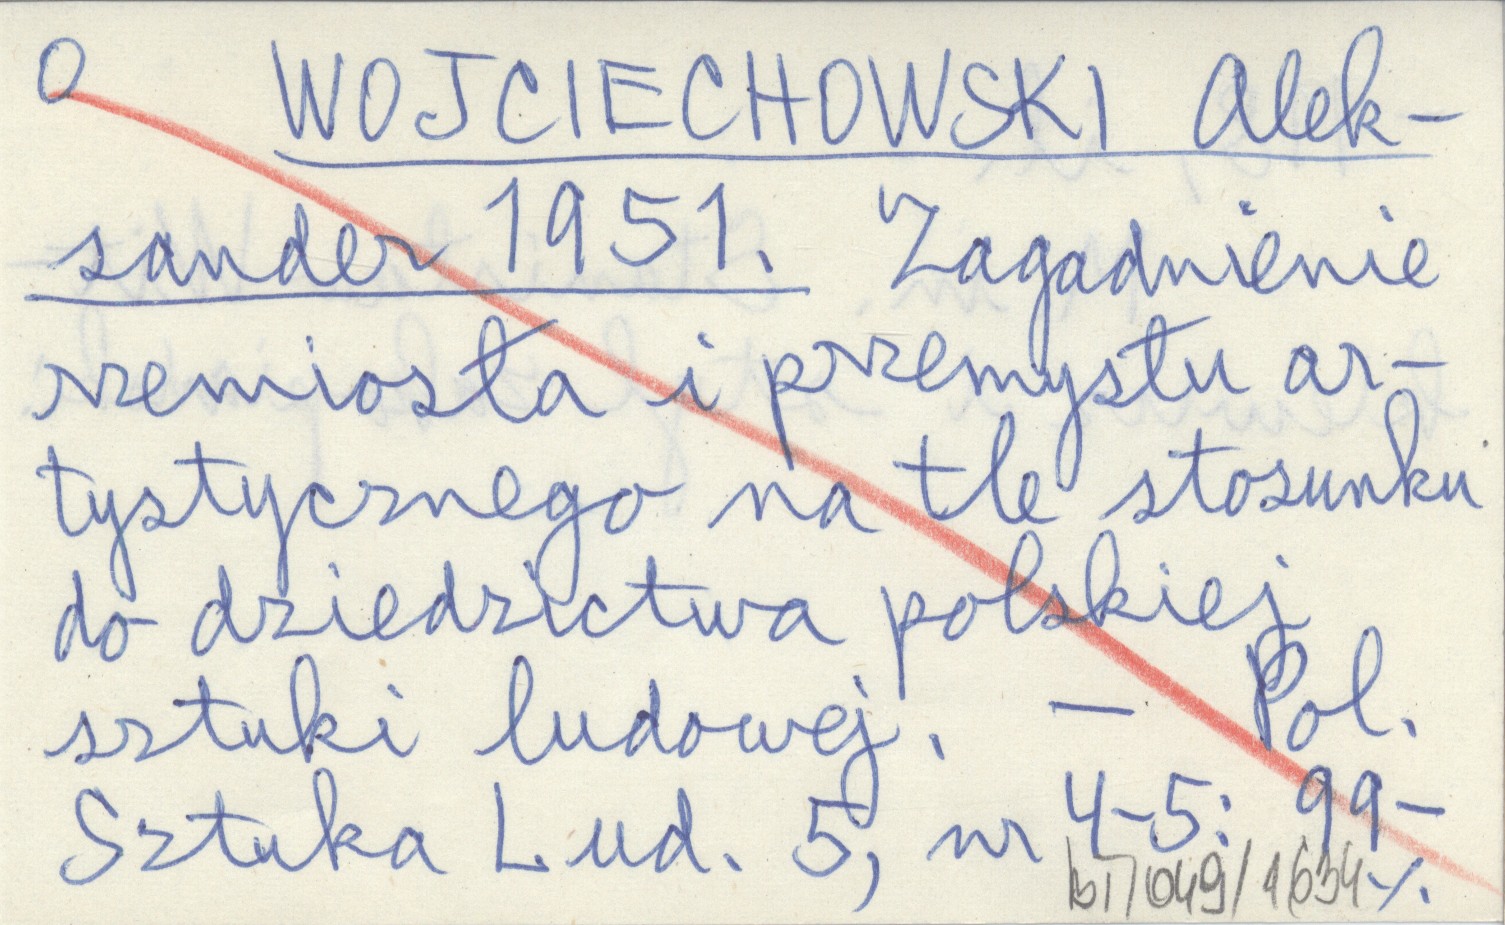 O WOJCIECHOWSKI Alek-
sander 1951. Zagadnienie
rzemiosła i przemysłu ar-
tystycznego na tle stosunku
do dziedzictwa polskiej
sztuki ludowej. — Pol.
Sztuka Lud. 5, nr 4-5: 99-
b17049/1634 ./.